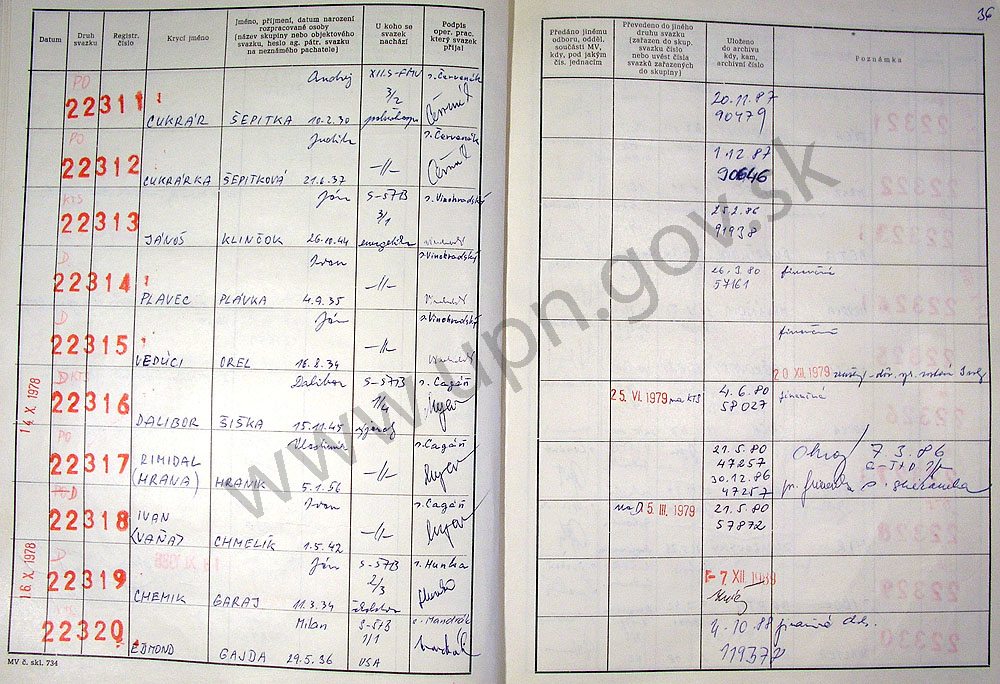 36
Datum
Druh svazku
Registr. číslo
Krycí jméno
Jméno, příjmení, datum narození
rozpracované osoby
(název skupiny nebo objektového
svazku, heslo ag. pátr. svazku
na neznámého pachatele)
U koho se
svazek
nachází
Podpis
oper. prac.
který svazek
přijal
Předáno jinému
odboru, odděl.
součásti MV,
kdy, pod jakým
čís. jednacím
Převedeno do jiného
druhu svazku
(zařazen do skup.
svazku číslo
nebo uvést čísla
svazků zařazených
do skupiny)
Uloženo
do archivu
kdy, kam,
archivní číslo
Poznámka
PO Andrej s. Červenák
22311 3/2 20.11.87
CUKRÁR ŠEPITKA 10.2.30 90479
PO Judita s. Červenák
22312 -//- 1.12.87
CUKRÁRKA ŠEPITKOVÁ 21.6.37 90646
KTS Ján S-ŠTB s. Vinohradský
22313 3/1 25.2.86
JÁNOŠ KLINČOK 26.10.44 energetika 91938
D Ivan s. Vinohradský
22314 -//- 26.3.80 finančná
PLAVEC PLÁVKA 4.9.35 57161
D Ján s. Vinohradský finančná
22315 -//-
VEDÚCI OREL 16.8.34 20 XII. 1979
14 X. 1978
D KTS Dalibor S-ŠTB s. Cagáň
22316 1/4 25. VI. 1979 na KTS 4.6.80 finančná
DALIBOR ŠIŠKA 15.11.45 58027
PO Vlastimír s. Cagáň
22317 RIMIDAL -//- 21.5.80 7.3.86
(HRANA) HRANIK 5.1.56 47257
30.12.86
47257
D Ivan s. Cagáň
22318 IVAN -//- 15. III. 1979 21.5.80
(VAŇA) CHMELÍK 1.5.42 57872
16 X. 1978
D Ján S-ŠTB s. Hunka
22319 2/3 -7 XII. 1989
CHEMIK GARAJ 11.3.34
Milan S-ŠTB s. Mandrák
22320 1/1 4.10.88
EDMOND GAJDA 29.5.36 USA 11937
MV č. skl. 734
www.upn.gov.sk